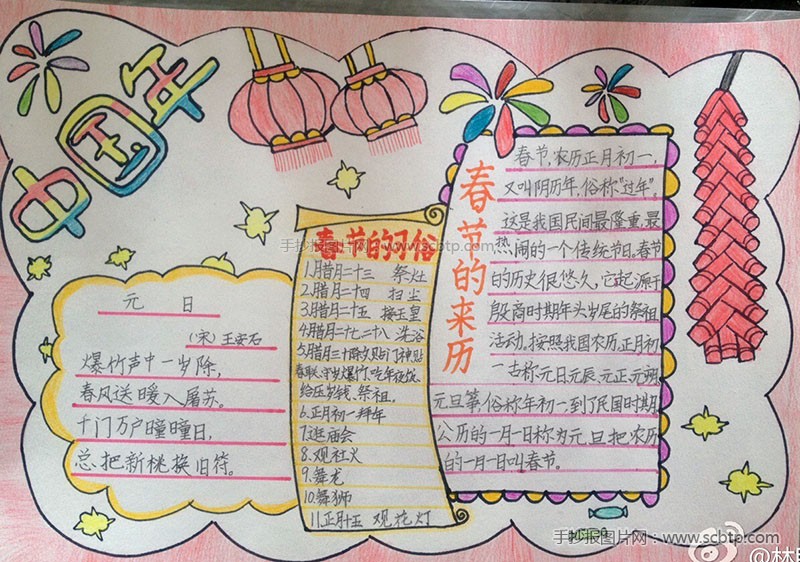 中国年
元 日
(宋)王安石
爆竹声中一岁除,
春风送暖入屠苏。
千门万户曈曈日,
总把新桃换旧符。
春节的习俗
1.腊月二十三 祭灶
2.腊月二十四 扫尘
3.腊月二十五 接玉皇
4.腊月二十七二十八 洗浴
5.腊月三十除夕贴门神贴
春联、守岁爆竹、吃年夜饭、
给压岁钱、祭祖。
6.正月初一拜年
7.逛庙会
8.观社火
9.舞龙
10.舞狮
11.正月十五 观花灯
春节的来历
春节,农历正月初一,
又叫阴历年,俗称"过年"。
这是我国民间最隆重、最
热闹的一个传统节日。春节
的历史很悠久,它起源于
殷商时期年头岁尾的祭祖
活动。按照我国农历,正月初
一古称元日、元辰、元正、元朔、
元旦等,俗称年初一,到了民国时期,
公历的一月一日称为元旦,把农历
的一月一日叫春节。
手抄报图片网:www.scbtp.com
手抄报图片网:www.scbtp.com